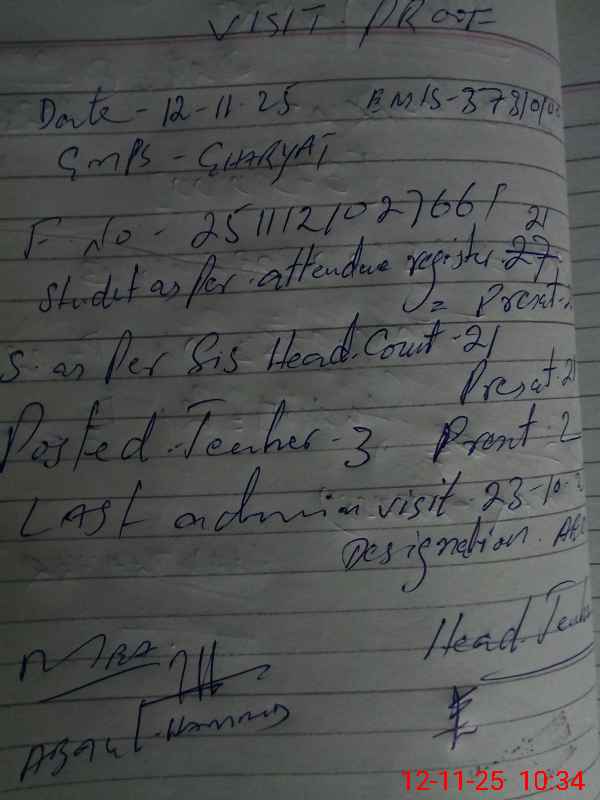 VISIT. PROOF
Date - 12-11-25 EMIS-373/0/0
GMPS - GHARYAT
F. No - 251112102766
21
Studet as Per. attendue register. 27
= Present.
S. as Per Sis Head. Count - 21
Presat. 21
Posted. Teacher - 3 Present. 2
LAST admin visit. 23-10-
Designation.
Head. Teach
12-11-25 10:34